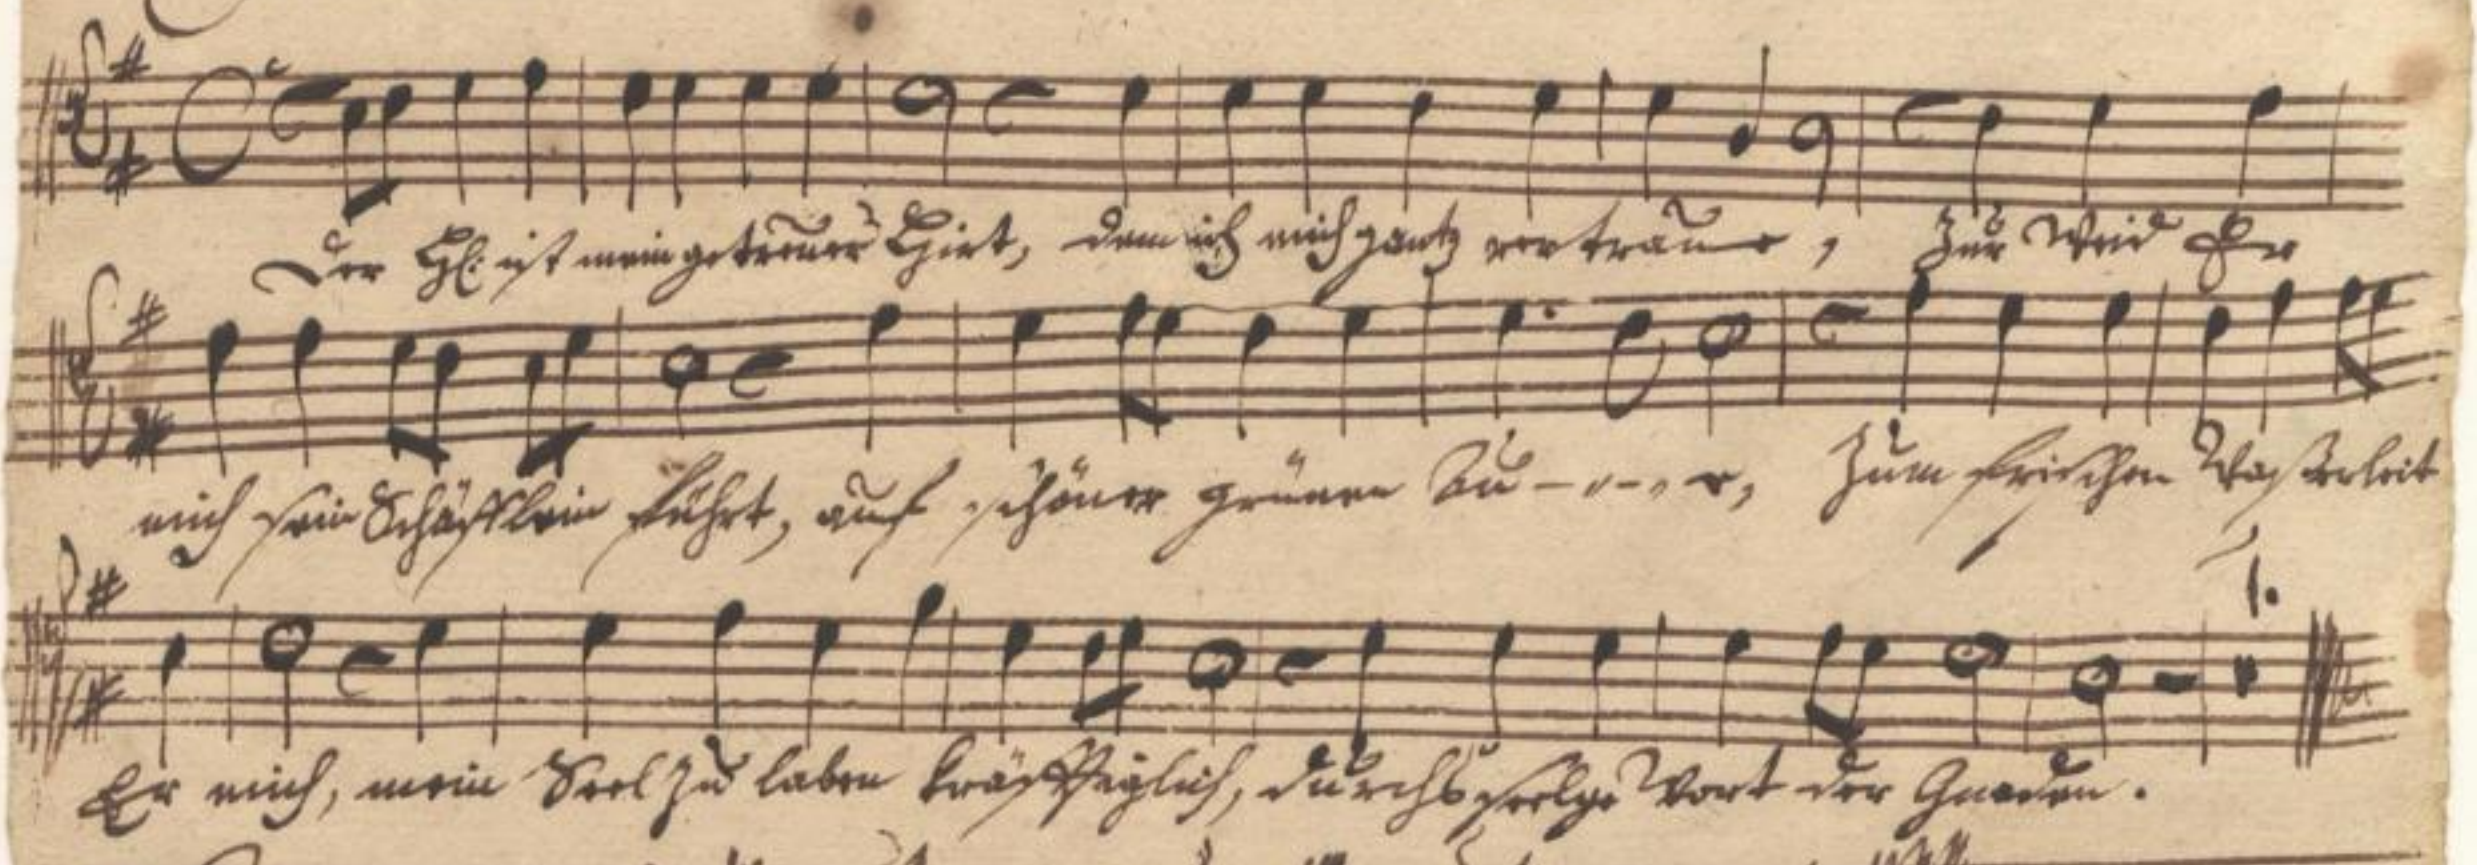 Der Hl: ist mein getreuer Hirt, dem ich mich gantz vertraue, Zur Weid Er
mich sein Schäfflein führt, auf schöner grünen Au - - - e, Zum frischen Waßer leit
Er mich, mein Seel zu laben kräfftiglich, durchs seelge Wort der Gnaden.